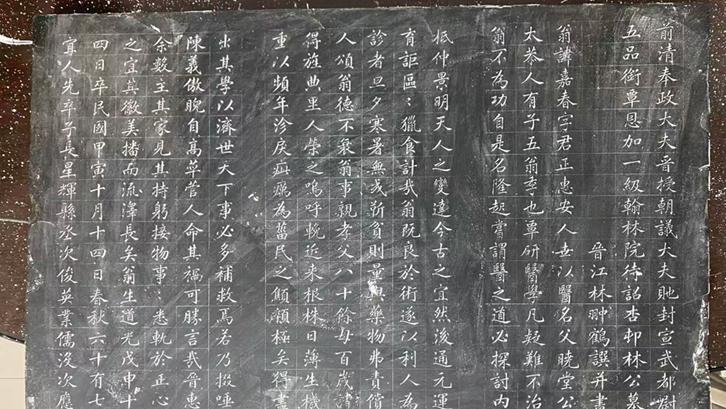 前清奉政大夫晉授朝議大夫貤封宣武都尉
五品銜覃恩加一級翰林院待詔杏邨林公墓
晉江林翀鶴譔并書
翁諱嘉春字君正惠安人世以醫名父曉堂公
太恭人有子五翁季也專研醫學凡疑難不治
翁不為功自是名隆起嘗謂醫之道必探討內
抵仲景明天人之變達今古之宜然後通元運
育詎區〻獵食計哉翁既良於術遂以利人為
診者旦夕寒暑無或靳貧則量與藥物弗責償
人頌翁德不衰翁事親孝父八十餘母百歲
得旌典里人榮之嗚呼輓近來根株日薄生機
重以頻年沴戾痌瘝為嘗民之顛頓極矣得書
出其學以濟世天下事必多補救焉若乃掇唾
陳義傲睨自高草菅人命其禍可勝言哉晉惠
余數主其家見其持躬接物事〻悉軌於正心
之宜其徽美播而流澤長矣翁生道光戊申十
四日卒民國甲寅十月十四日春秋六十有七
宜人先卒子長星輝縣丞次俊英業儒沒次應